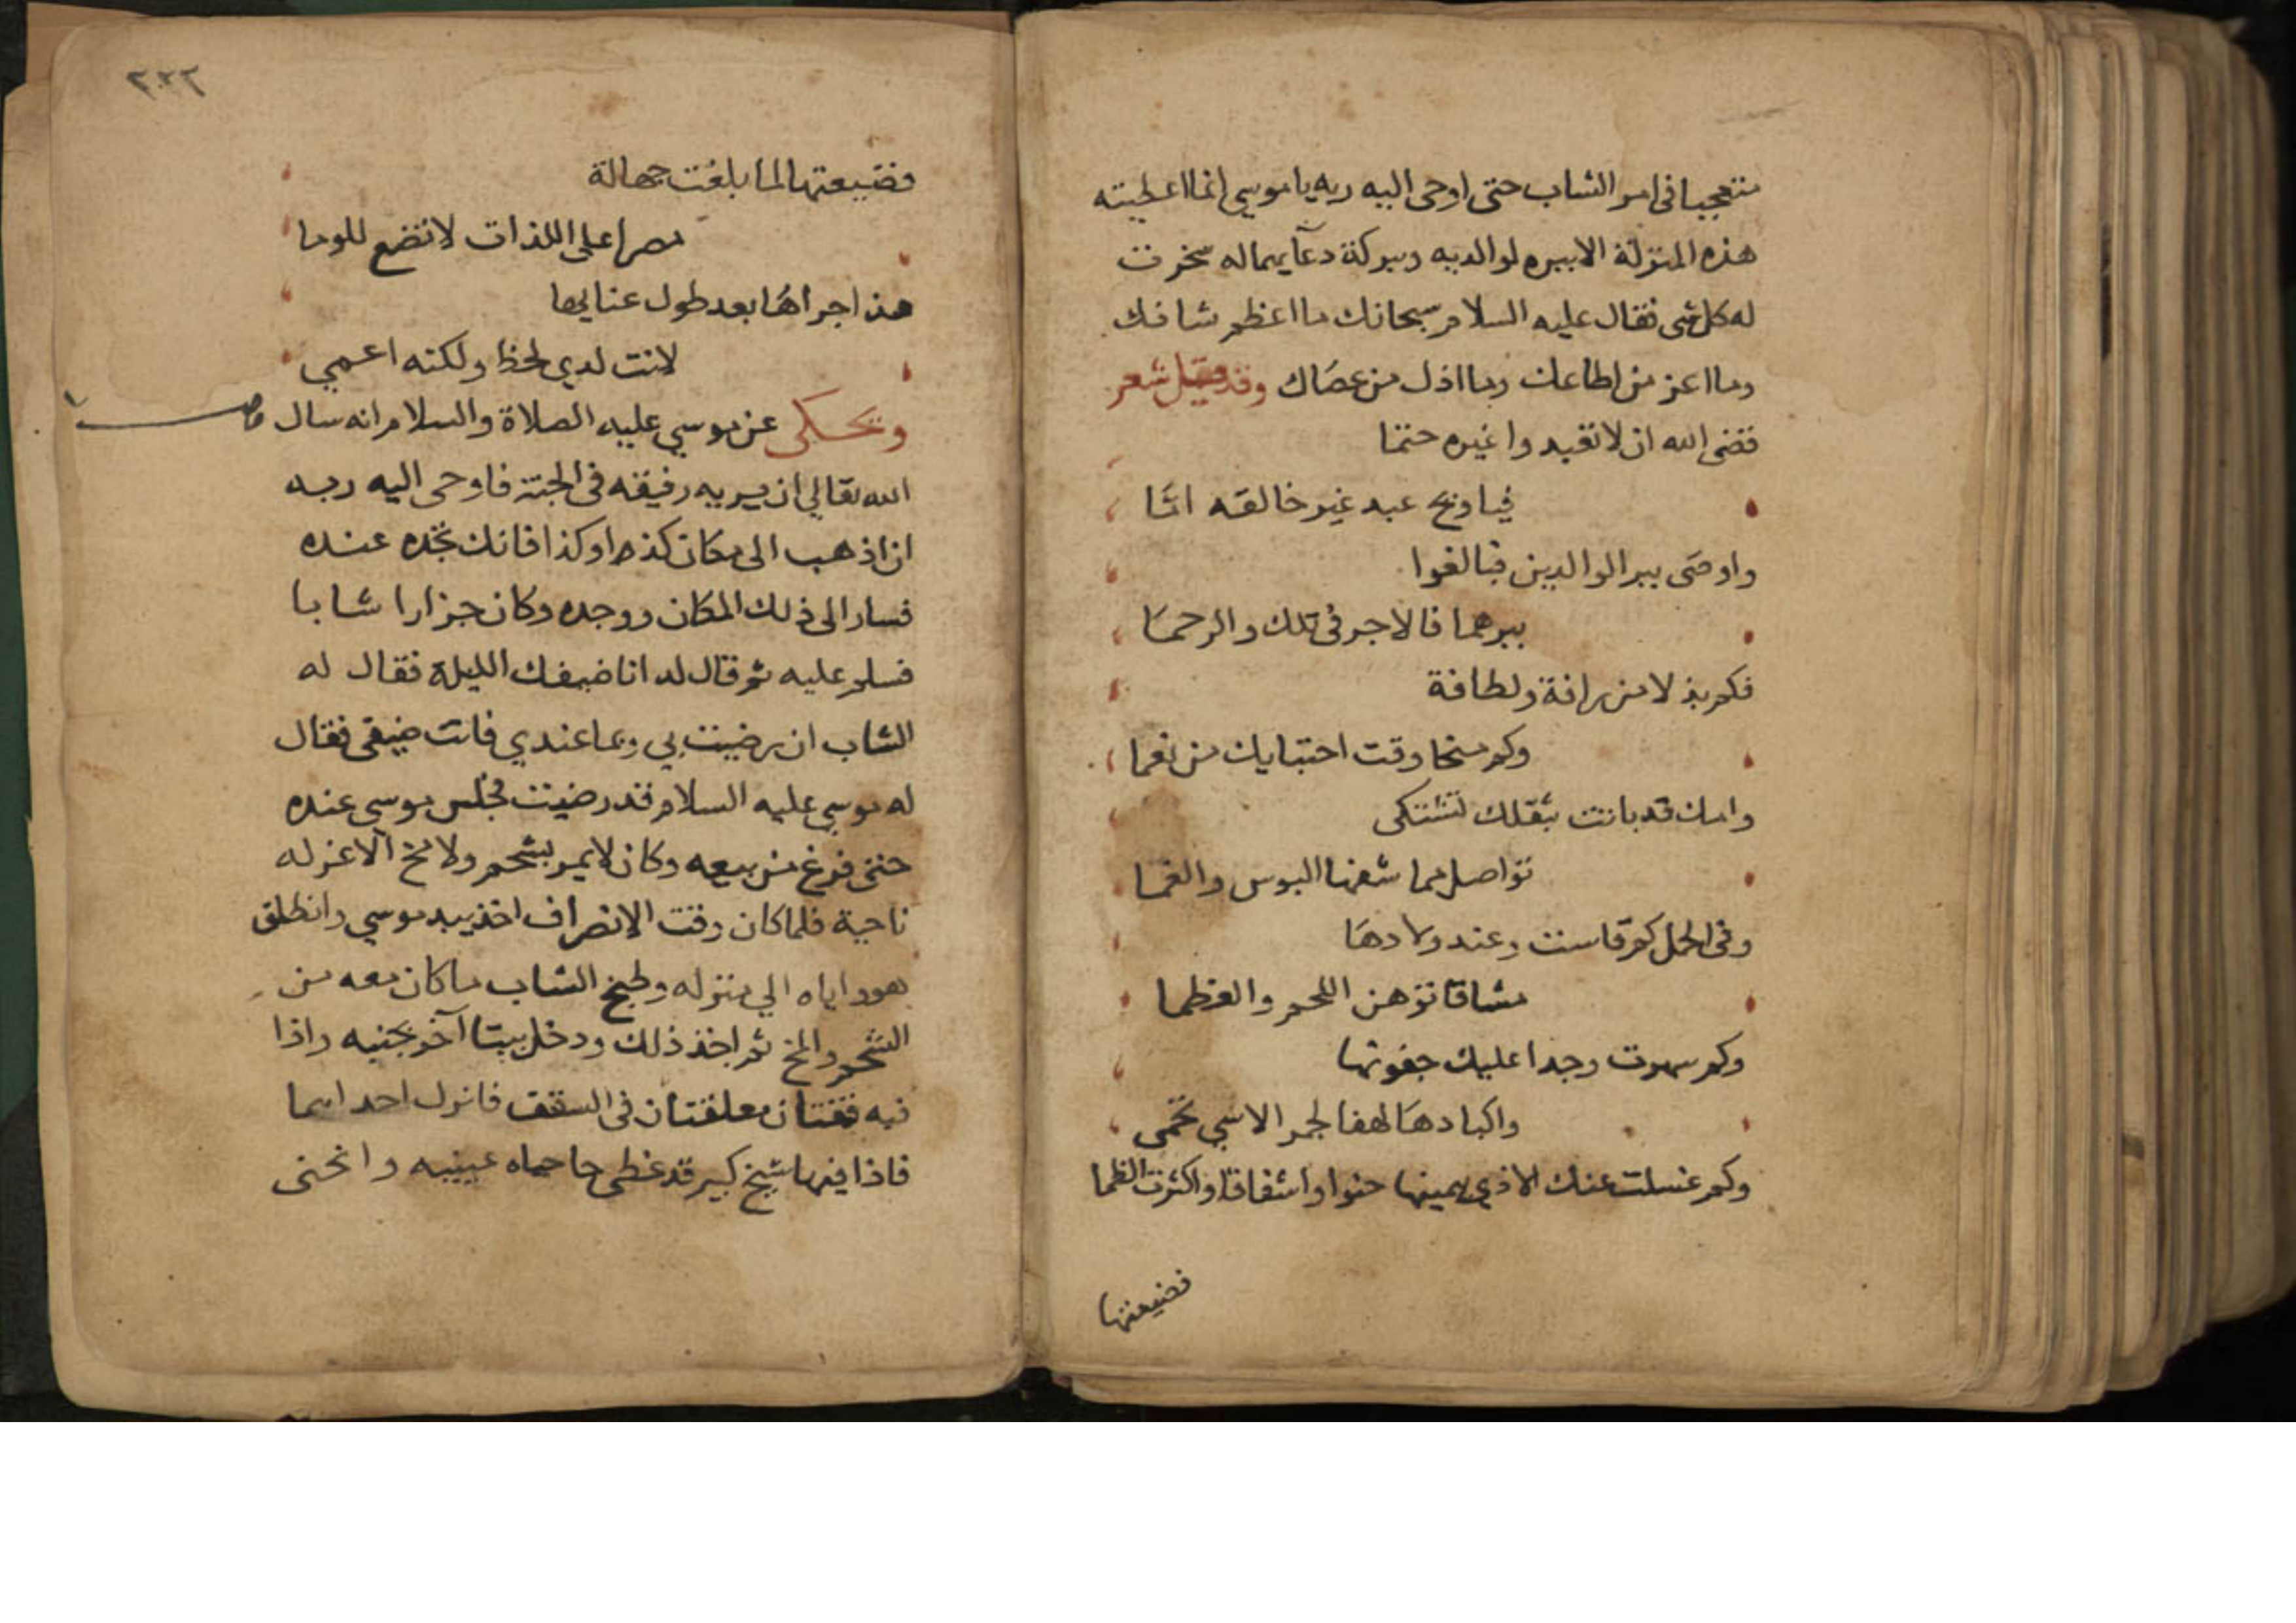 متعجبا فى امر الشاب حتى اوحى اليه ربه يا موسي انما اعطيته
هذه المنزلة الا ببره لوالديه وببركة دعآيهما له سخرت
له كل شى فقال عليه السلام سبحانك ما اعظم شانك
وما اعز من اطاعك وما اذل من عصاك وقد قيل شعر
قضى الله ان لا تعبدوا غيره حتما
فيا ويح عبد غير خالقه امّا
واوصى ببر الوالدين فبالغوا
ببرهما فالاجر فى تلك والرحما
فكم بذلا من رافة ولطافة
وكم منحا وقت احتبايك من نعما
وامك قد باتت بثقلك تشتكى
تواصل مما شفها البوس والغما
وفى الحمل كم قاست وعند ولادها
مشاقا توهن اللحم والعظما
وكم سهرت وجدا عليك جفونها
واكبادها لهفا لجمر الاسي تحمى
وكم غسلت عنك الاذي بيمينها حنوا واشفاقا واكثرت الظما
فضيعتها
٢٢٢
فضيعتها لما بلغت جهالة
مصرا على اللذات لا تضع للوما
هذا جراها بعد طول عنايها
لانت لدي لحظ ولكنه اعمي
ويحكى عن موسي عليه الصلاة والسلام انه سال
الله تعالي ان يريه رفيقه فى الجنة فاوحى اليه ربه
ان اذهب الى مكان كذا وكذا فانك تجده عنده
فسار الى ذلك المكان ووجده وكان جزارا شابا
فسلم عليه ثم قال له انا ضيفك الليلة فقال له
الشاب ان رضيت بي وبما عندي فانت ضيفى فقال
له موسي عليه السلام قد رضيت فجلس موسى عنده
حتى فرغ من بيعه وكان لا يمر بشحم ولا مخ الا عزله
ناحية فلما كان وقت الانصراف اخذ بيد موسي وانطلق
هو واياه الي منزله وطبخ الشاب ما كان معه من
الشحم والمخ ثم اخذ ذلك ودخل بيتا آخر بجنبه واذا
فيه قفتان معلقتان فى السقف فانزل احداهما
فاذا فيها شيخ كبير قد غطى حاجباه عينيه وانحنى